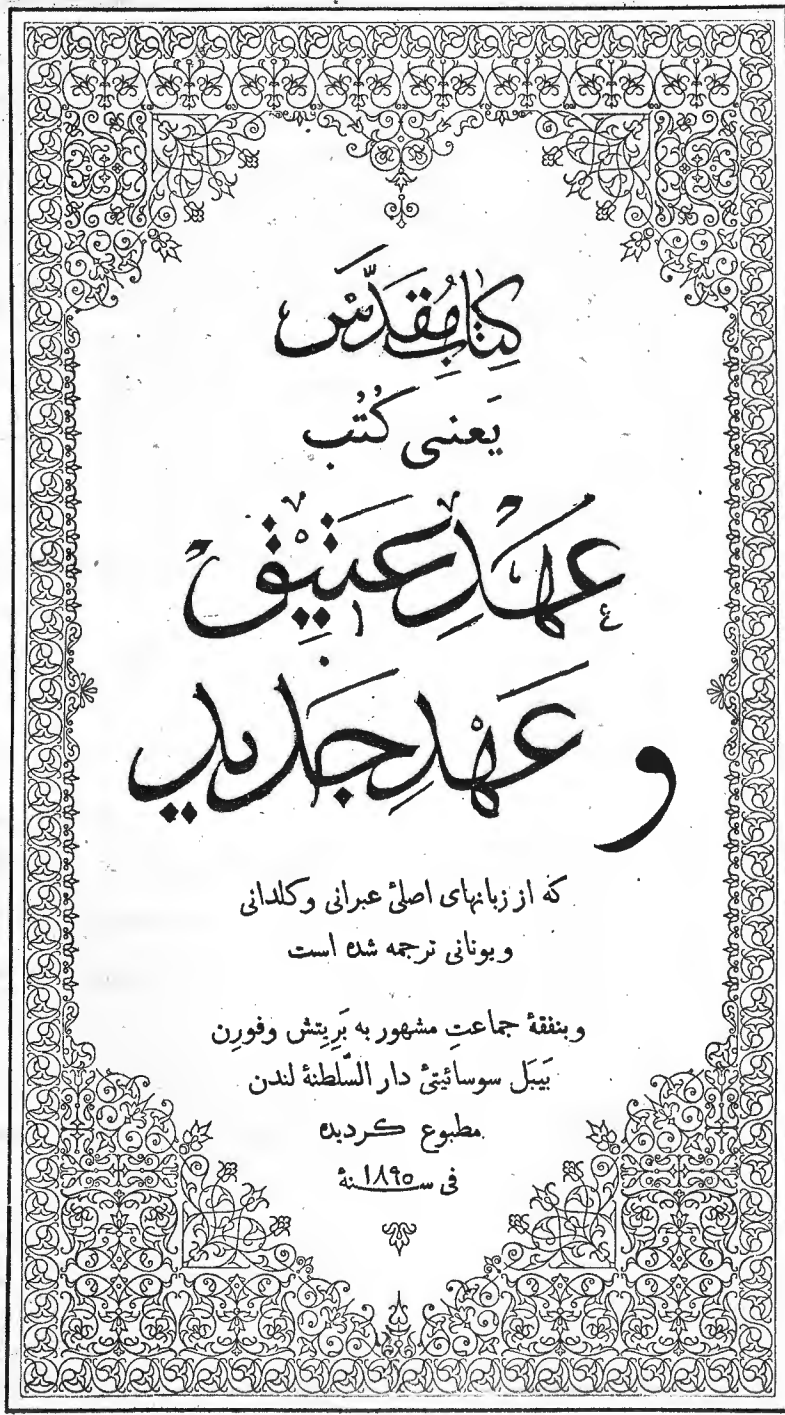 کِتابِ مُقَدَّس
یَعنی کُتُب
عَهْدِ عَتِیق
و عَهْدِ جَدِید
که از زبانهای اصلیٔ عبرانی و کلدانی
و یونانی ترجمه شده است
و بنفقهٔ جماعتِ مشهور به بَرِیتش وفورِن
بَیبَل سوسائیتیٔ دار السّلطنهٔ لندن
مطبوع گردیده
فی سنهٔ ۱۸۹۵